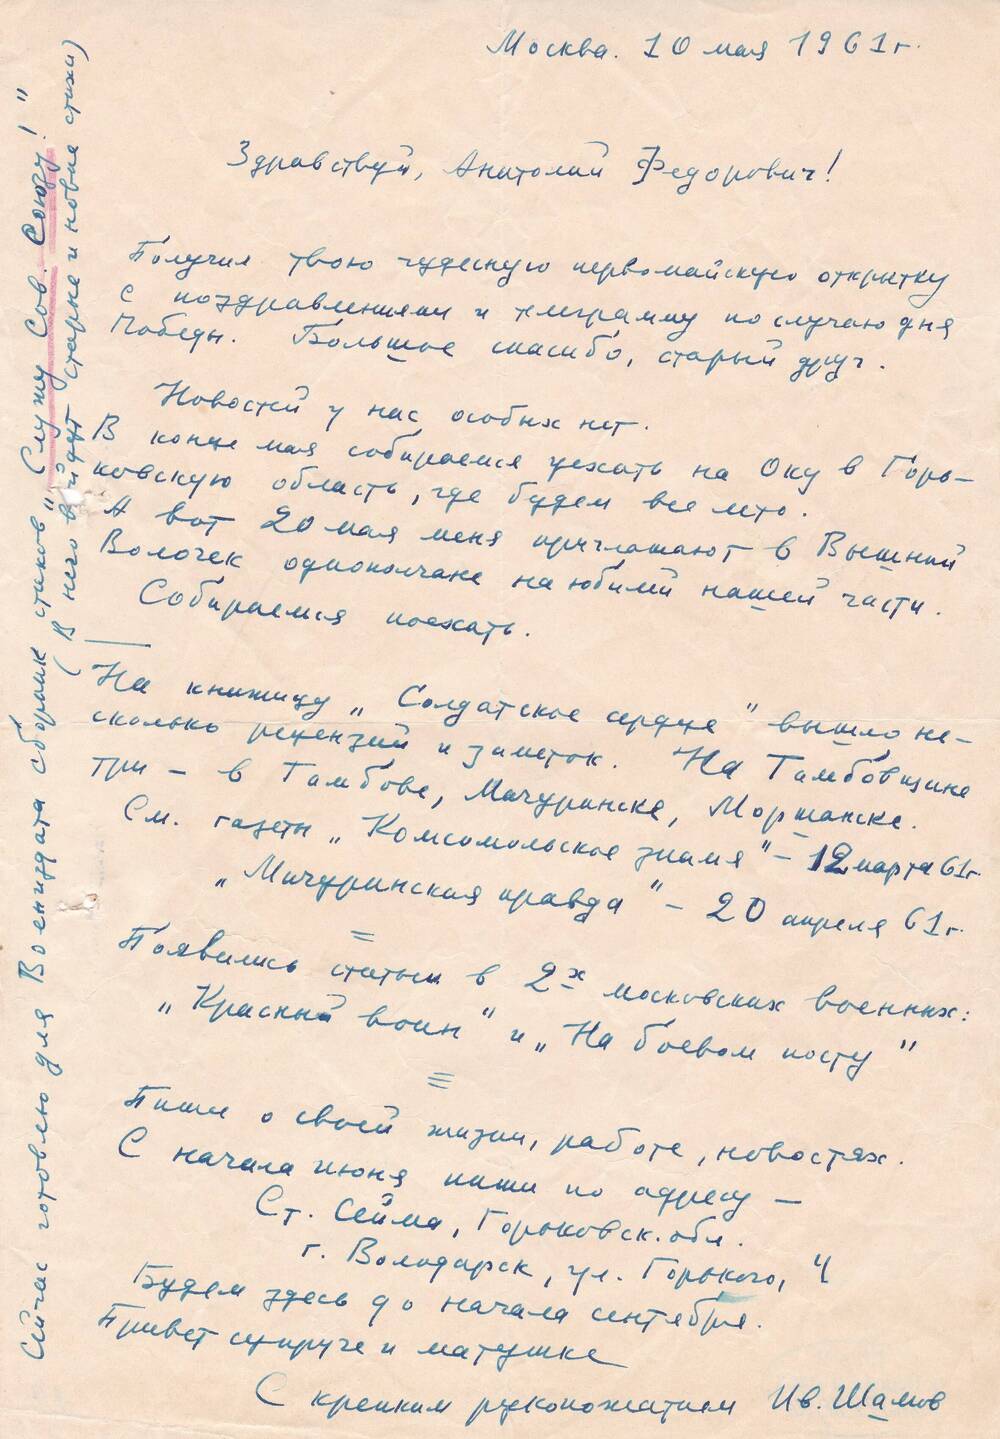 Москва. 10 мая 1961 г.
Здравствуй, Анатолий Федорович!
Получил твою чудесную первомайскую открытку
с поздравлениями и телеграмму по случаю дня
Победы. Большое спасибо, старый друг.
Новостей у нас особых нет.
В конце мая собираемся уехать на Оку в Горь-
ковскую область, где будем все лето.
А вот 20 мая меня приглашают в Вышний
Волочек однополчане на юбилей нашей части.
Собираемся поехать.
На книжицу „Солдатское сердце" вышло не-
сколько рецензий и заметок. На Тамбовщине
три – в Тамбове, Мичуринске, Моршанске.
См. газеты „Комсомольское знамя" – 12 марта 61 г.
„Мичуринская правда" – 20 апреля 61 г.
=
Появились статьи в 2х московских военных:
„Красный воин" и „На боевом посту"
=
Пиши о своей жизни, работе, новостях.
С начала июня пиши по адресу –
Ст. Сейма, Горьковск. обл.
г. Володарск, ул. Горького, 4
Будем здесь до начала сентября.
Привет супруге и матушке
С крепким рукопожатием Ив. Шамов
Сейчас готовлю для Воениздата сборник стихов „Служу Сов. Союзу!"
(В него войдут старые и новые стихи)